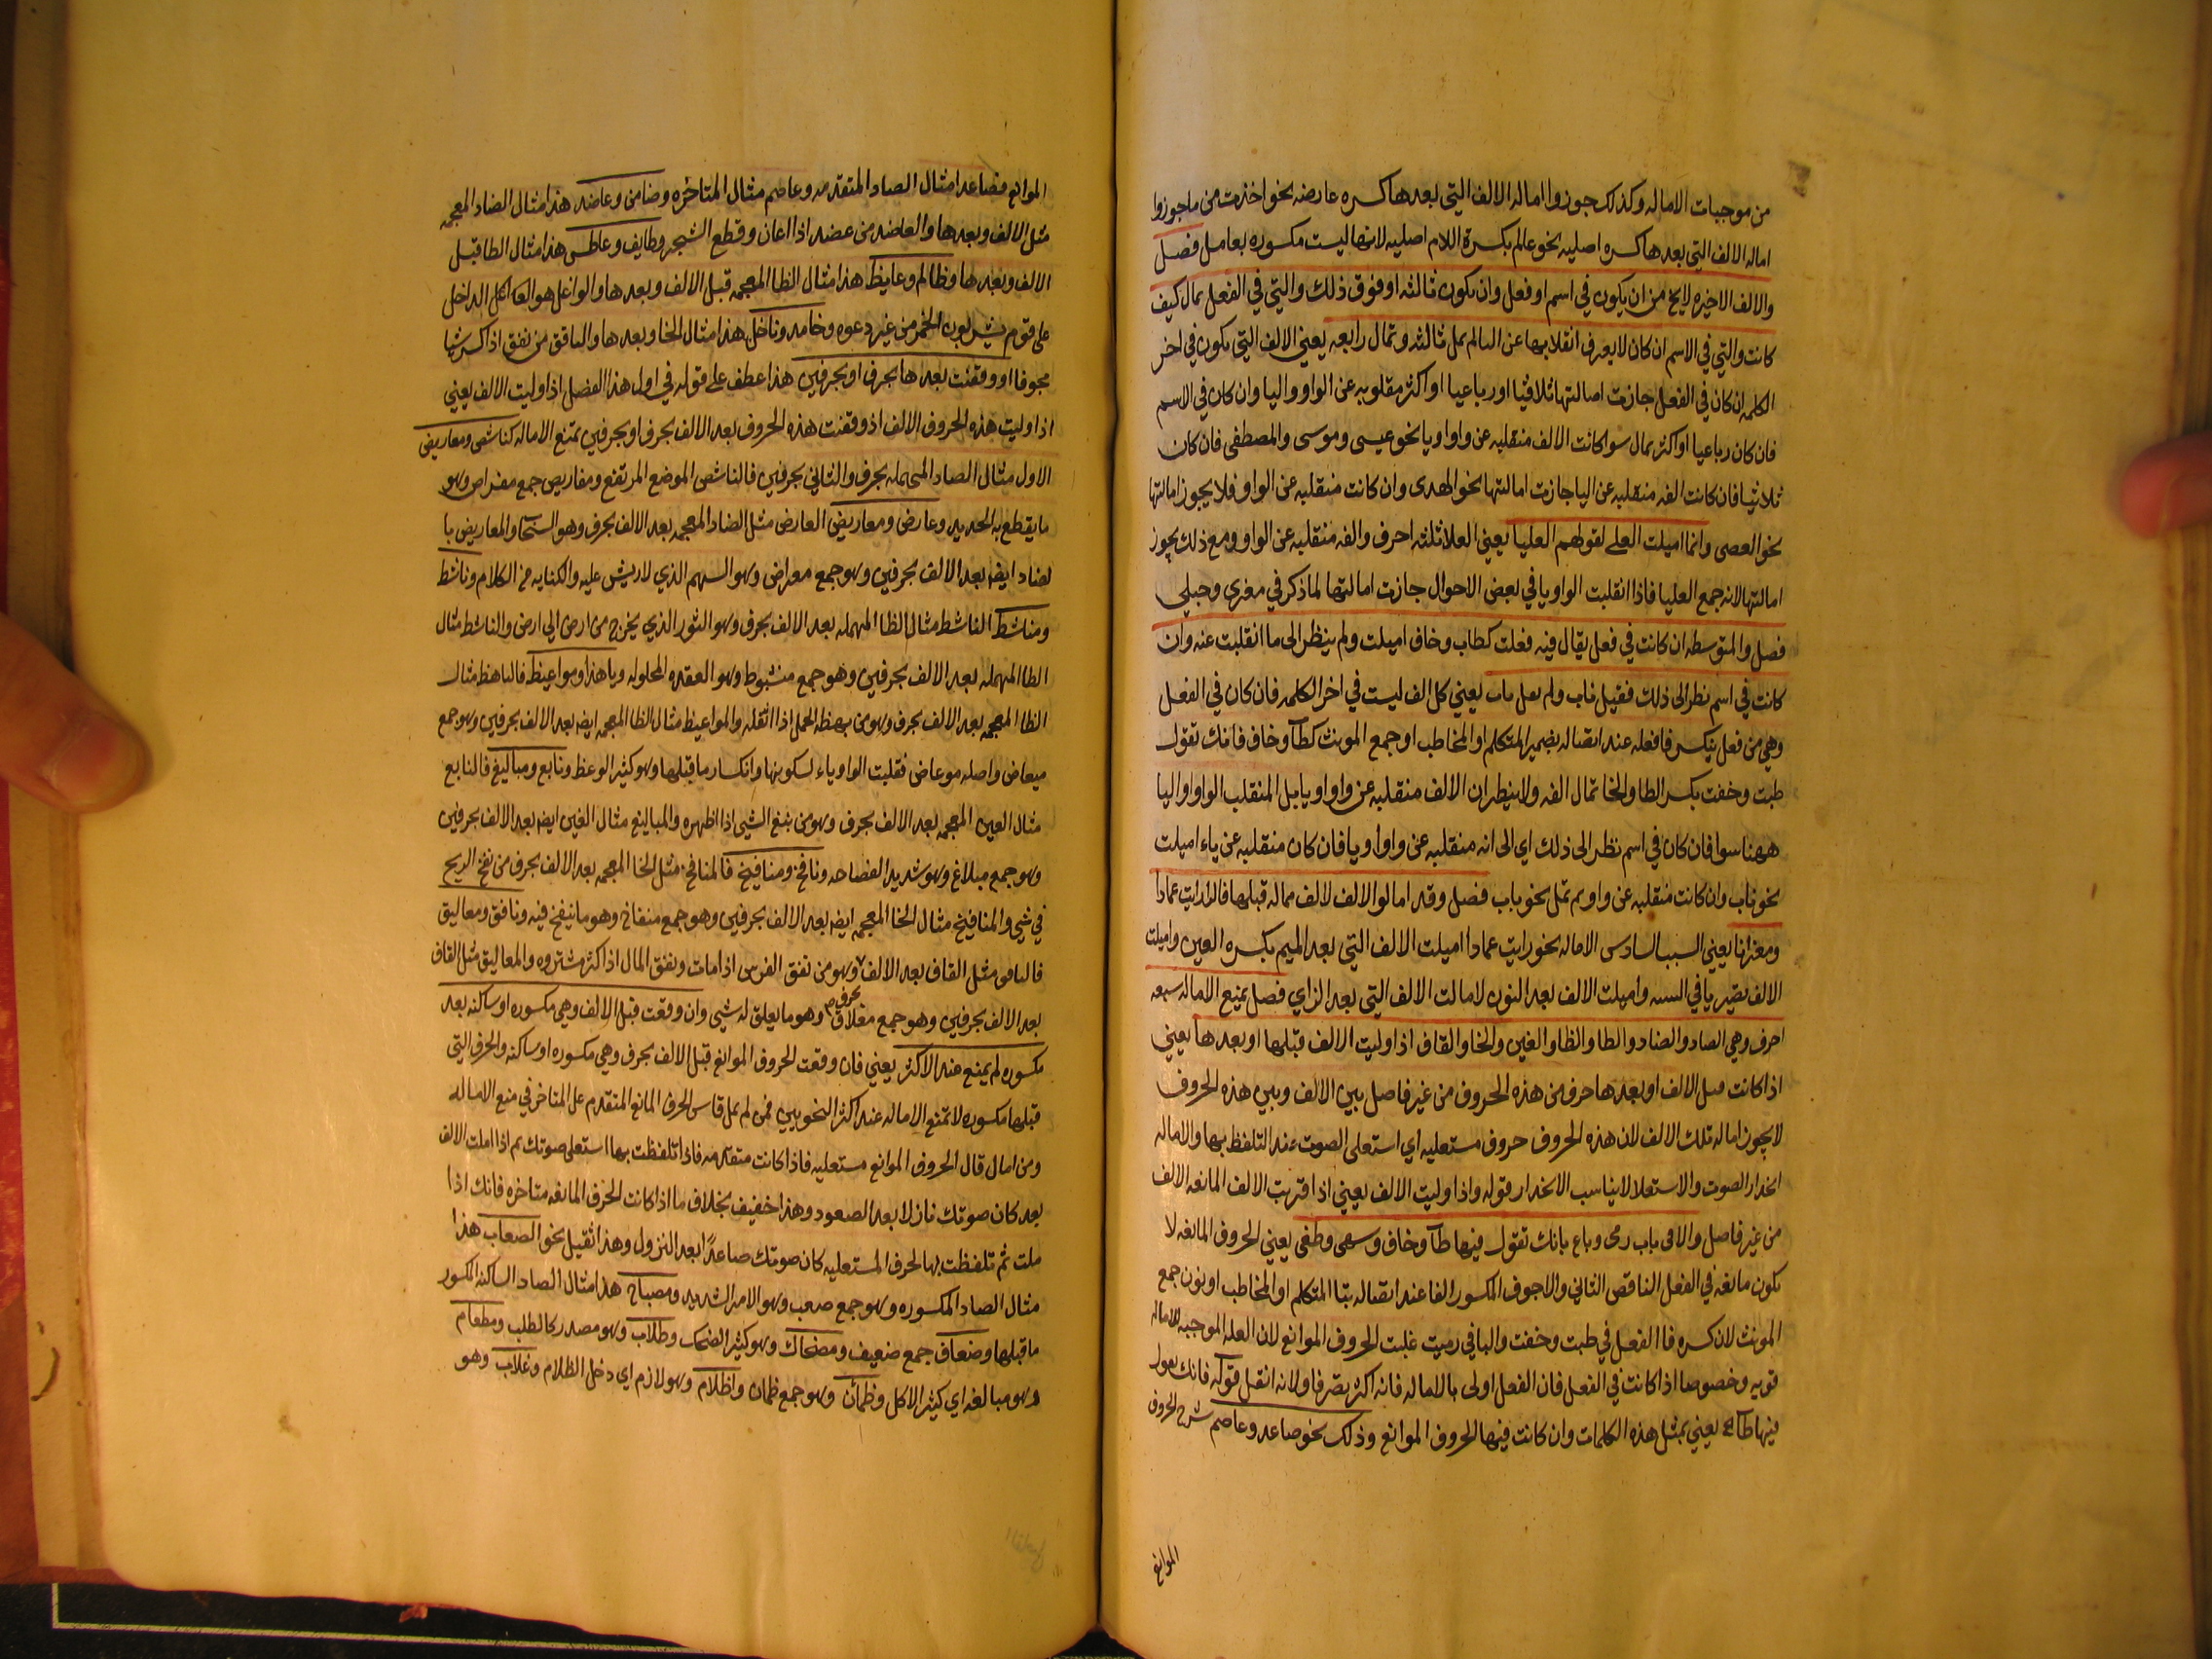 من موجبات الاماله وكذلك جوزوا اماله الالف التي بعدها كسره عارضه نحو اخذت من ماجوزوا
اماله الالف التي بعدها كسره اصليه نحو عالم بكسرة اللام اصليه لانها ليست مكسوره بعامل فصل
والالف الاخيره لايخ من ان يكون في اسم او فعل وان يكون ثالثه او فوق ذلك والتي في الفعل تمال كيف
كانت والتي في الاسم ان كان لايعرف انقلابها عن اليالم تمل ثالثه وتمال رابعه يعني الالف التي تكون في اخر
الكلمه ان كان في الفعل جازت امالتها ثلاثيا او رباعيا او اكثر مقلوبه عن الواو واليا وان كان في الاسم
فان كان رباعيا او اكثر تمال سوا كانت الالف منقلبه عن واو او يا نحو عيسى وموسى والمصطفى فان كان
ثلاثيا فان كانت الفه منقلبه عن اليا جازت امالتها نحو الهدى وان كانت منقلبه عن الواو فلا يجوز امالتها
نحو العصى وانما اميلت العلى لقولهم العليا يعني العلا ثلثه احرف والفه منقلبه عن الواو ومع ذلك يجوز
امالتها لانه جمع العليا فاذا انقلبت الواو يا في بعض الاحوال جازت امالتها لما ذكر في مغزى وحبلى
فصل والمتوسطه ان كانت في فعل يقال فيه فعلت كطاب وخاف اميلت ولم ينظر الى ما انقلبت عنه وان
كانت في اسم نظر الى ذلك فقيل ناب ولم يمل باب يعني كل الف ليست في اخر الكلمه فان كان في الفعل
وهي من فعل ينكسر فا فعله عند اتصاله بضمير المتكلم والمخاطب او جمع المونث كطاب وخاف فانك تقول
طبت وخفت بكسر الطا والخا تمال الفه ولا ينظر ان الالف منقلبه عن واو او يا بل المنقلب الواو او اليا
ههنا سوا فان كان في اسم نظر الى ذلك اي الى انه منقلبه عن واو او يا فان كان منقلبه عن ياء اميلت
نحو ناب وان كانت منقلبه عن واو لم تمل نحو باب فصل وقد امالوا الالف لالف مماله قبلها قالوا رايت عمادا
ومعزانا يعني السبب السادس الاماله نحو رايت عمادا اميلت الالف التي بعد الميم بكسره العين واميلت
الالف تصير يا في السه واميلت الالف بعد النون لامالت الالف التي بعد الزاي فصل تمنع الاماله سبعه
احرف وهي الصاد والضاد والطا والظا والغين والخا والقاف اذا وليت الالف قبلها او بعدها يعني
اذا كانت قبل الالف او بعدها حرف من هذه الحروف من غير فاصل بين الالف وبين هذه الحروف
لايجوز اماله تلك الالف لان هذه الحروف حروف مستعليه اي استعلى الصوت عند التلفظ بها والاماله
انحدار الصوت والاستعلا لايناسب الانحدار قوله واذا وليت الالف يعني اذا قربت الالف المانعه الالف
من غير فاصل والا في باب رمى وباع بانك تقول فيها طاب وخاف وسهى وطغى يعني الحروف المانعه لا
تكون مانعه في الفعل الناقص الثاني والاجوف المكسور الفا عند اتصاله بتا المتكلم او المخاطب او نون جمع
المونث لان كسره فا الفعل في طبت وخفت واليا في رميت غلبت الحروف الموانع لان العله الموجبه للاماله
قويه وخصوصا اذا كانت في الفعل فان الفعل اولى بالاماله فانه اكثر تصرفا ولانه اثقل قوله فانك تقول
فيها طاب يعني بمثل هذه الكلمات وان كانت فيها الحروف الموانع وذلك نحو صاعد وعاصم شرح الحروف
الموانع
الموانع فصاعد امثال الصاد المتقدمه وعاصم مثال المتاخره وضامن وعاضد هذا مثال الضاد المعجمه
مثل الالف وبعدها والعاضد من عضد اذا اعان وقطع الشجر وطايف وعاطس هذا مثال الطا قبل
الالف وبعدها وظالم وعايظ هذا مثال الظا المعجمه قبل الالف وبعدها والواغل هو الداخل
على قوم يشربون الخمر من غير دعوه وخامد وناخل هذا مثال الخا وبعدها والنافق من نفق اذا كسر شيا
مجوفا او وقعت بعدها بحرف او بحرفين هذا عطف على قوله في اول هذا الفصل اذا وليت الالف يعني
اذا وليت هذه الحروف الالف اذ وقعت هذه الحروف بعد الالف بحرف او بحرفين تمنع الاماله كناشص ومعاريض
الاول مثال الصاد المهمله بحرف والثاني بحرفين فالناشص الموضع المرتفع ومفاريص جمع مفراص وهو
ما يقطع به الحديد وعارض ومعاريض العارض مثل الضاد المعجمه بعد الالف بحرف وهو السحاب والمعاريض با
لضاد ايضه بعد الالف بحرفين وهو جمع معراض وهو السهم الذي لاريش عليه والكنايه من الكلام وناشط
ومناشيط الناشط مثال الطا المهمله بعد الالف بحرف وهو الثور الذي يخرج من ارض الى ارض والناشط مثال
الطا المهمله بعد الالف بحرفين وهو جمع منشوط وهو العقده المحلوله وباهظ ومواعيظ فالباهظ مثال
الظا المعجمه بعد الالف بحرف وهو من بهظه الحمل اذا اثقله والمواعيظ مثال الظا المعجمه ايضه بعد الالف بحرفين وهو جمع
ميعاض واصله موعاض فقلبت الواو ياء لسكونها وانكسار ما قبلها وهو كثير الوعظ ونابغ ومباليغ فالنابغ
مثال الغين المعجمه بعد الالف بحرف وهو من نبغ الشيى اذا اظهره والمباليغ مثال الغين ايضه بعد الالف بحرفين
وهو جمع مبلاغ وهو شديد الفصاحه ونافخ ومنافيخ فالنافخ مثل الخا المعجمه بعد الالف بحرف من نفخ الريح
في شيى والمنافيخ مثال الخا المعجمه ايضه بعد الالف بحرفين وهو جمع منفاخ وهو ما ينفخ فيه ونافق ومعاليق
فالنافق مثل القاف بعد الالف بحرف وهو من نفق الفرس اذا مات ونفق المال اذا كثر مشتروه والمعاليق مثل القاف
بعد الالف بحرفين وهو جمع معلاق وهو ما يعلق له شيى وان وقعت قبل الالف وهي مكسوره او ساكنه بعد
مكسوره لم يمنع عند الاكثر يعني فان وقعت الحروف الموانع قبل الالف بحرف وهي مكسوره او ساكنه والحرف التي
قبلها مكسوره لاتمنع الاماله عند اكثر النحويين فمن لم يمل قاس الحرف المانع المتقدم على المتاخر في منع الاماله
ومن امال قال الحروف الموانع مستعليه فاذا كانت متقدمه فاذا تلفظت بها استعلى صوتك ثم اذا املت الالف
بعد كان صوتك نازلا بعد الصعود وهذا خفيف بخلاف ما اذا كانت الحرف المانعه متاخره فانك اذا
ملت ثم تلفظت بها الحرف المستعليه كان صوتك صاعدًا بعد النزول وهذا ثقيل نحو الصعاب هذا
مثال الصاد المكسوره وهو جمع صعب وهو الامر الشديد ومصباح هذا مثال الصاد الساكنه المكسور
ما قبلها وضعاف جمع ضعيف ومضحاك وهو كثير الضحك وطلاب وهو مصدر كالطلب ومطعام
وهو مبالغه اي كثير الاكل وظمآن وهو جمع ظمان واظلام وهو لازم اي دخل الظلام وغلاب وهو